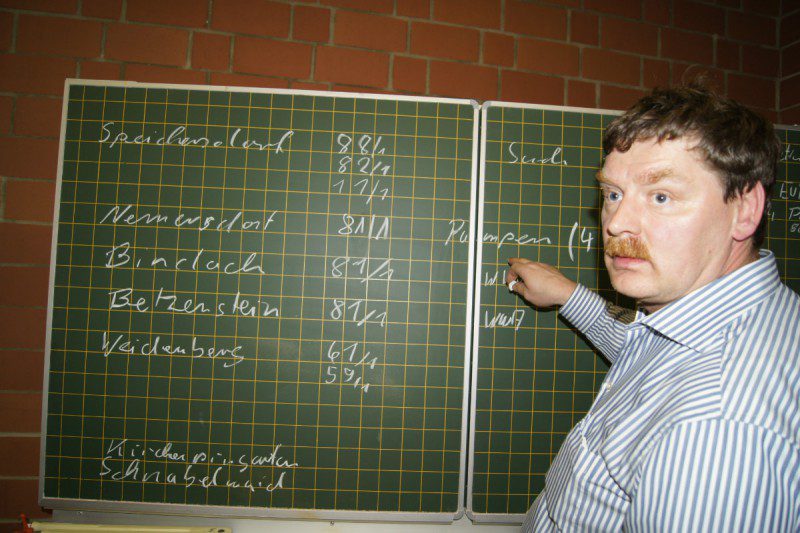 Speichersdorf 88/1
82/1
11/1
Nemersdorf 81/1
Bindlach 81/1
Betzenstein 81/1
Weidenberg 61/1
59/1
Kirchenpingarten
Schnabelwaid
Such
Pumpen (4